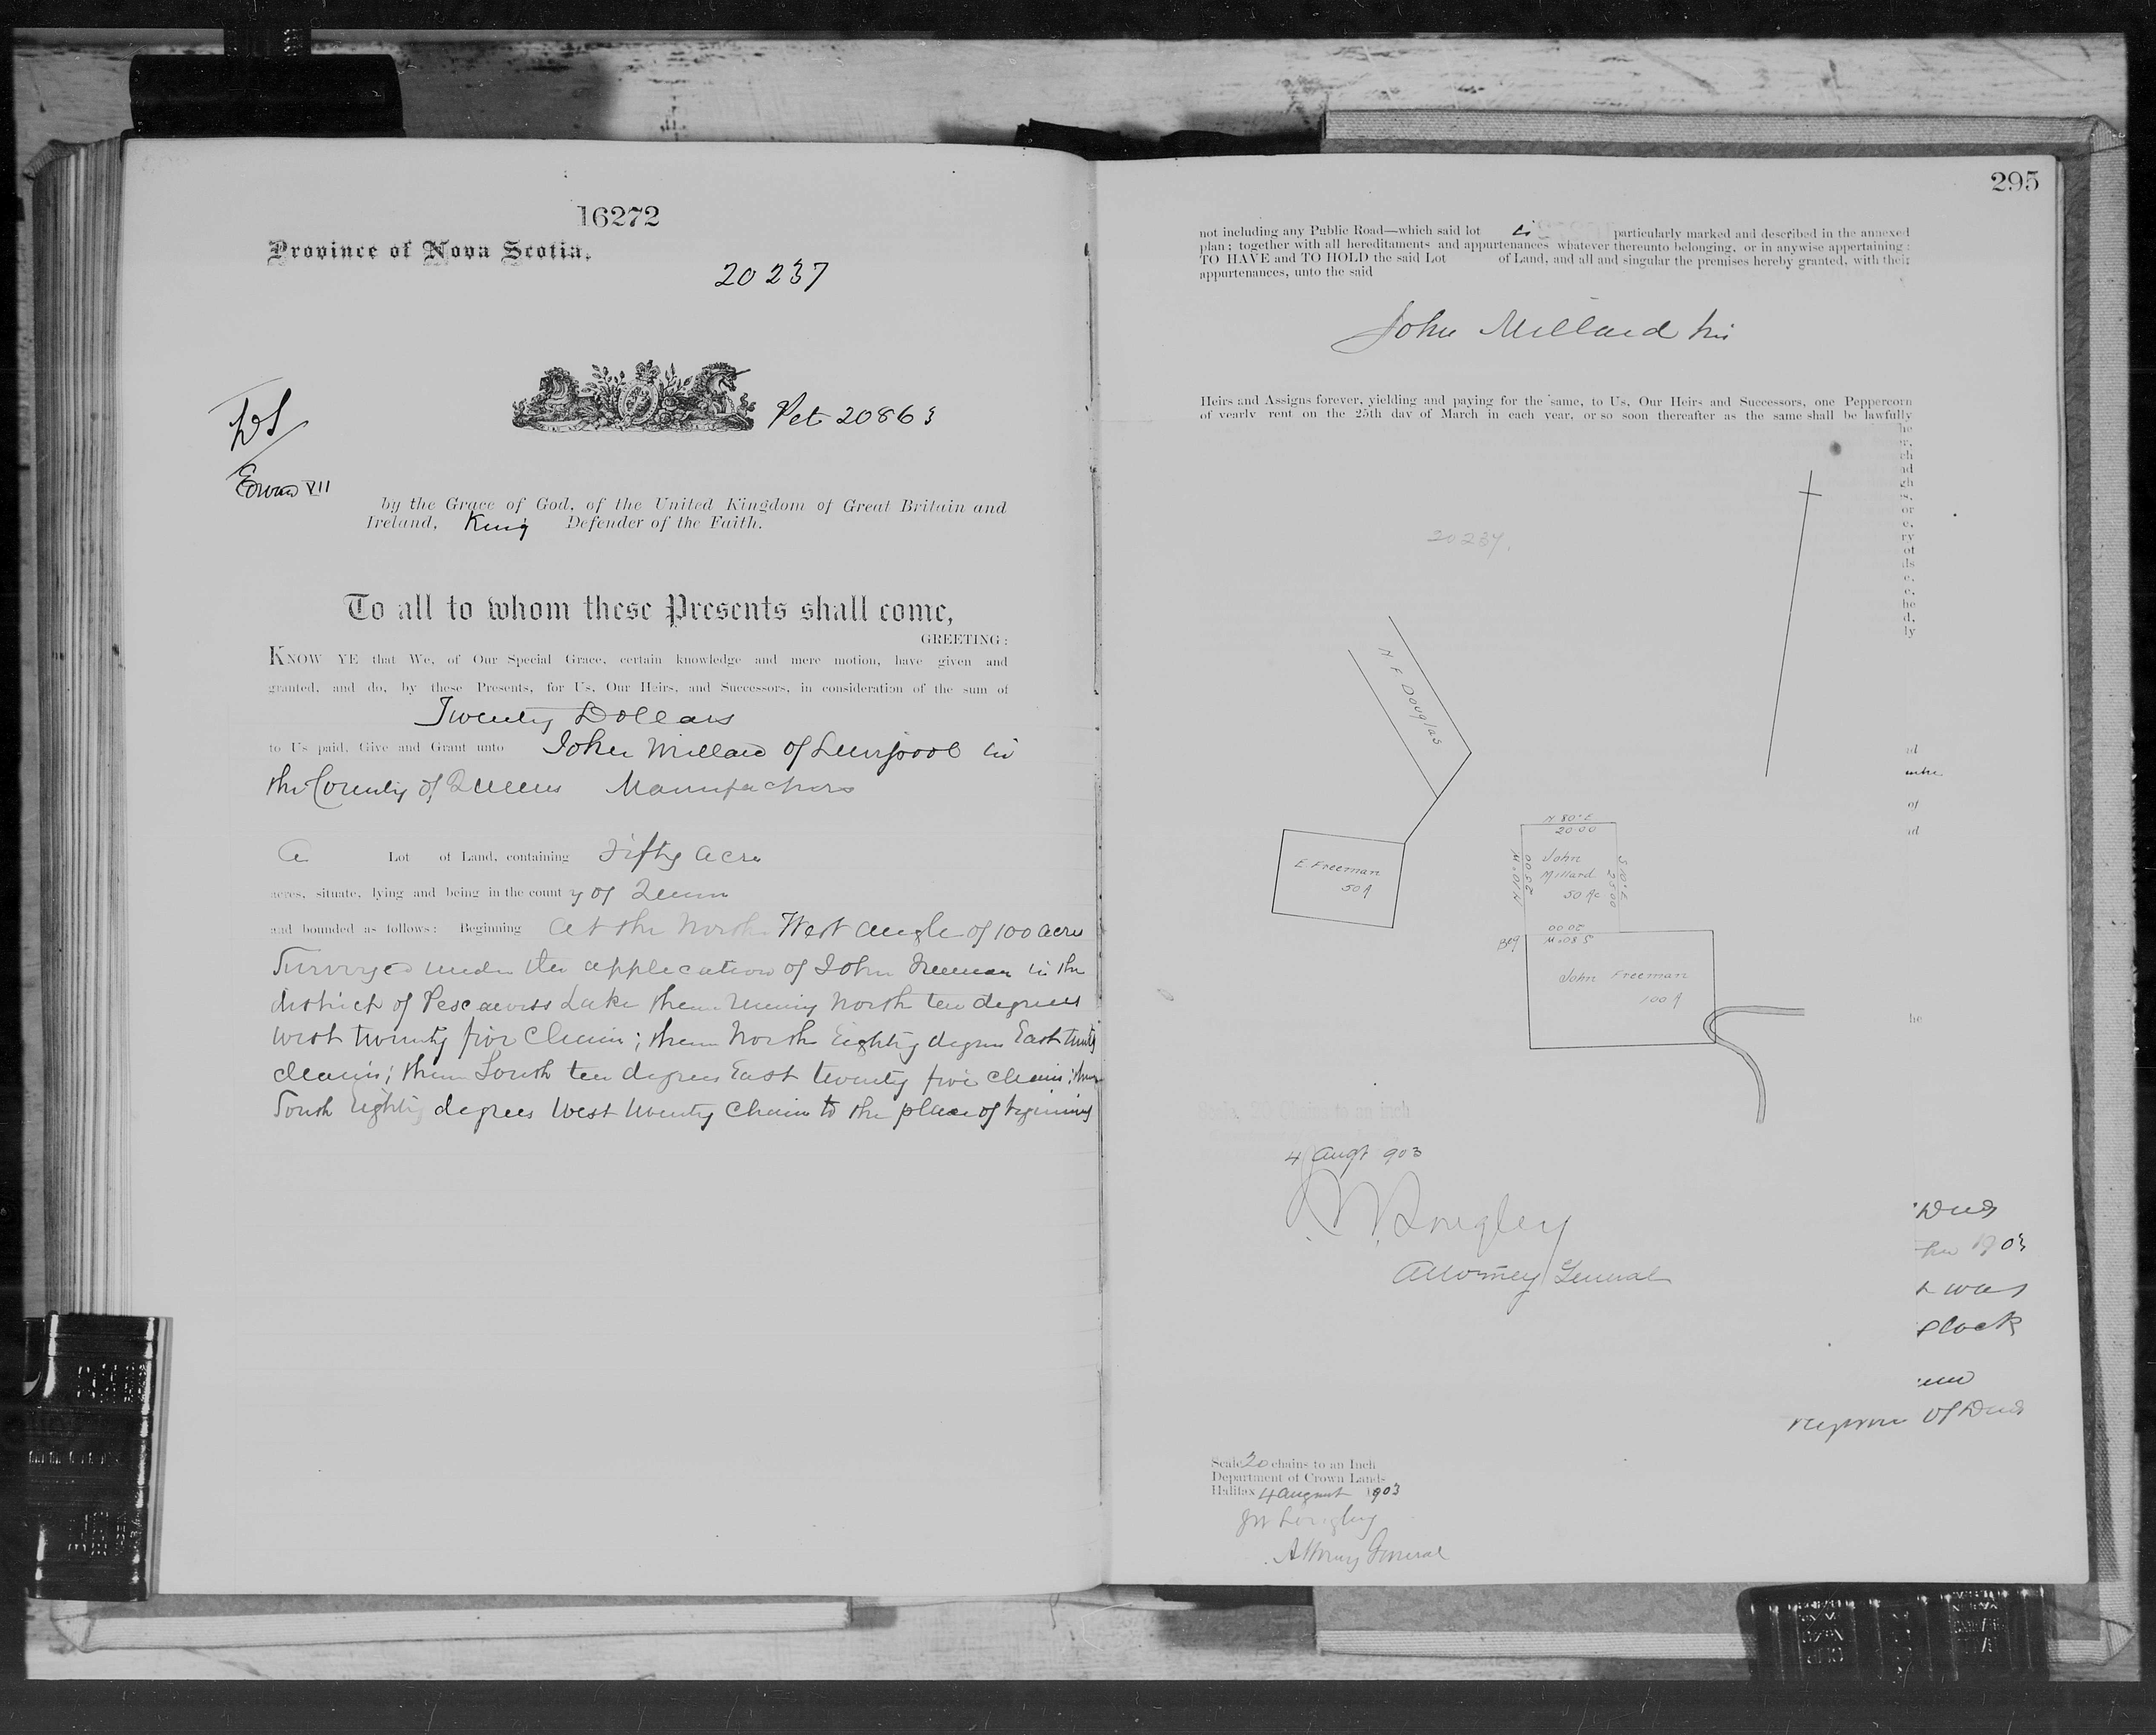 16272
Province of Nova Scotia.
20237
Pet 20863
Edward VII
by the Grace of God, of the United Kingdom of Great Britain and
Ireland, King Defender of the Faith.
To all to whom these Presents shall come,
GREETING:
KNOW YE that We, of Our Special Grace, certain knowledge and mere motion, have given and
granted, and do, by these Presents, for Us, Our Heirs, and Successors, in consideration of the sum of
Twenty Dollars
to Us paid, Give and Grant unto John Millard of Liverpool in
the County of Queens Manufacturer
A Lot of Land, containing Fifty acres
acres, situate, lying and being in the county of Queens
and bounded as follows: Beginning at the North West angle of 100 acres
Surveyed under the application of John Freeman in the
district of Pescawess Lake thence running North ten degrees
West twenty five chains; thence North Eighty degrees East twenty
chains; thence South ten degrees East twenty five chains; thence
South Eighty degrees West twenty chains to the place of beginning
295
not including any Public Road—which said lot is particularly marked and described in the annexed
plan; together with all hereditaments and appurtenances whatever thereunto belonging, or in anywise appertaining:
TO HAVE and TO HOLD the said Lot of Land, and all and singular the premises hereby granted, with their
appurtenances, unto the said
John Millard his
Heirs and Assigns forever, yielding and paying for the same, to Us, Our Heirs and Successors, one Peppercorn
of yearly rent on the 25th day of March in each year, or so soon thereafter as the same shall be lawfully
20237.
N F Douglas
E Freeman
50 A
N 80° E
20.00
N 10° W
25.00
John
Millard
50 Ac
S 10° E
25.00
20.00
S 80° W
Beg
John Freeman
100 A
4 Augt 903
J. W. Longley
Attorney General
Deeds
1903
was
Clock
Registrar of Deeds
Scale 20 chains to an Inch
Department of Crown Lands
Halifax 4 August 1903
JW Longley
Attorney General